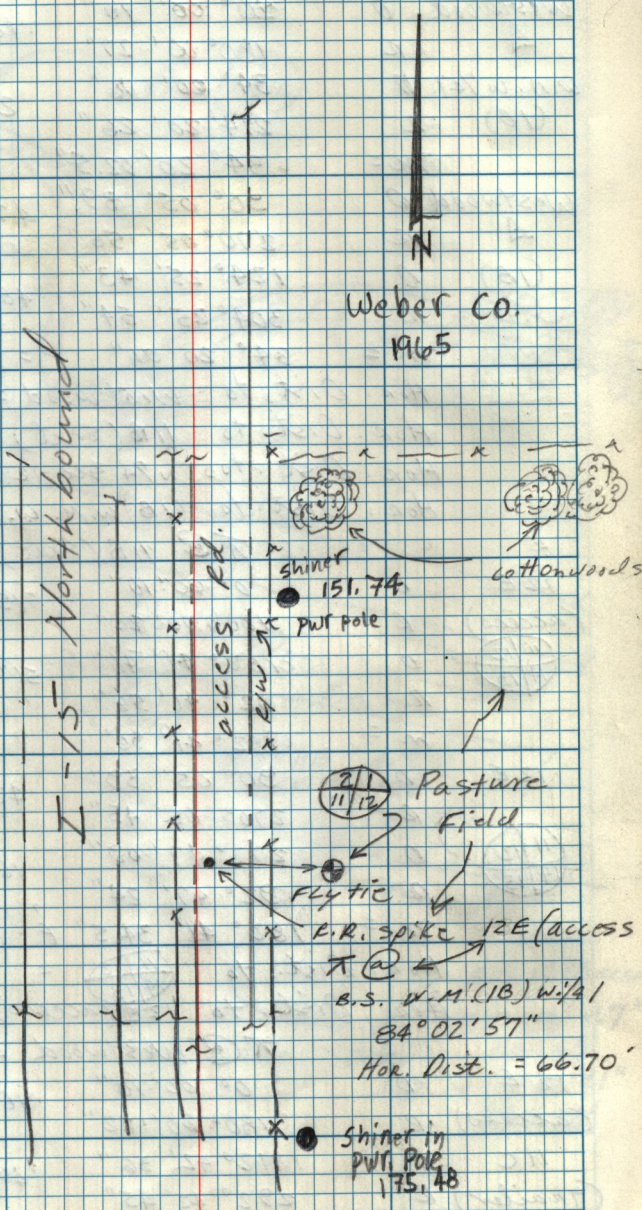 N
Weber Co.
1965
I-15 North bound
access Rd.
R/W
cottonwoods
Shiner
151.74
pwr pole
2 1
11 12
Pasture
Field
FLy tie
R.R. spike 12E (access
π @
B.S. W.M (1B) W.1/4 1
84° 02' 57"
Hor. Dist. = 66.70'
Shiner in
pwr. Pole
175.48